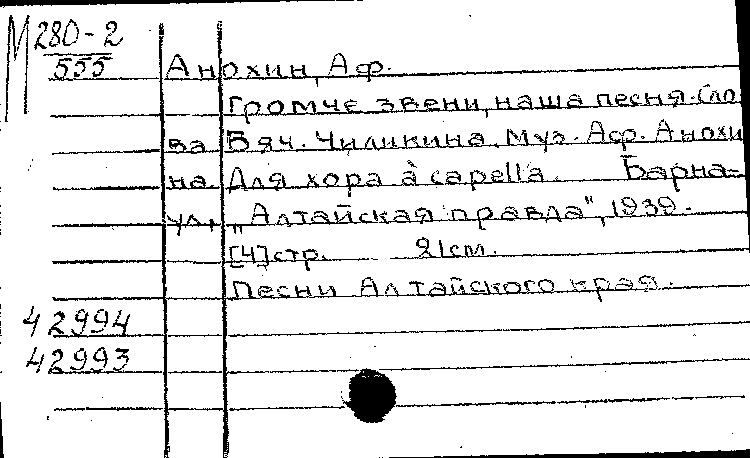 М 280-2
555
Анохин, Аф.
Громче звени, наша песня. Сло
ва Вяч. Чиликина. Муз. Аф. Анохи
на. Для хора à capella. Барна=
ул, „Алтайская правда", 1939.
[4] стр. 21 см.
Песни Алтайского края.
42994
42993